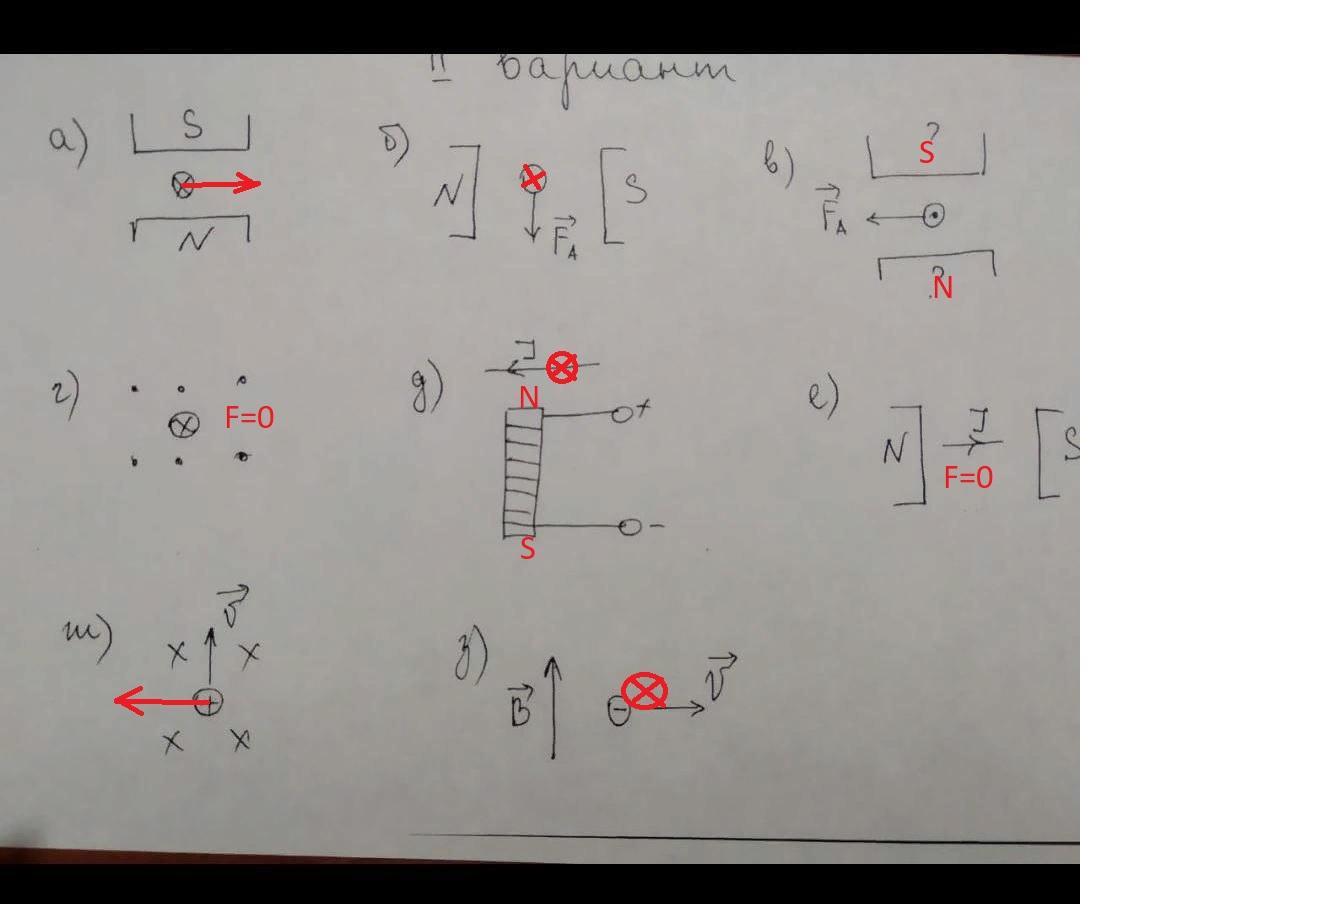 II вариант
а) S
N
б) N S
F_A
в) ? S
F_A
? N
г) F=0
д) I
N
+
S
−
е) N I S
F=0
ж) v
x x
+
x x
з) B − v